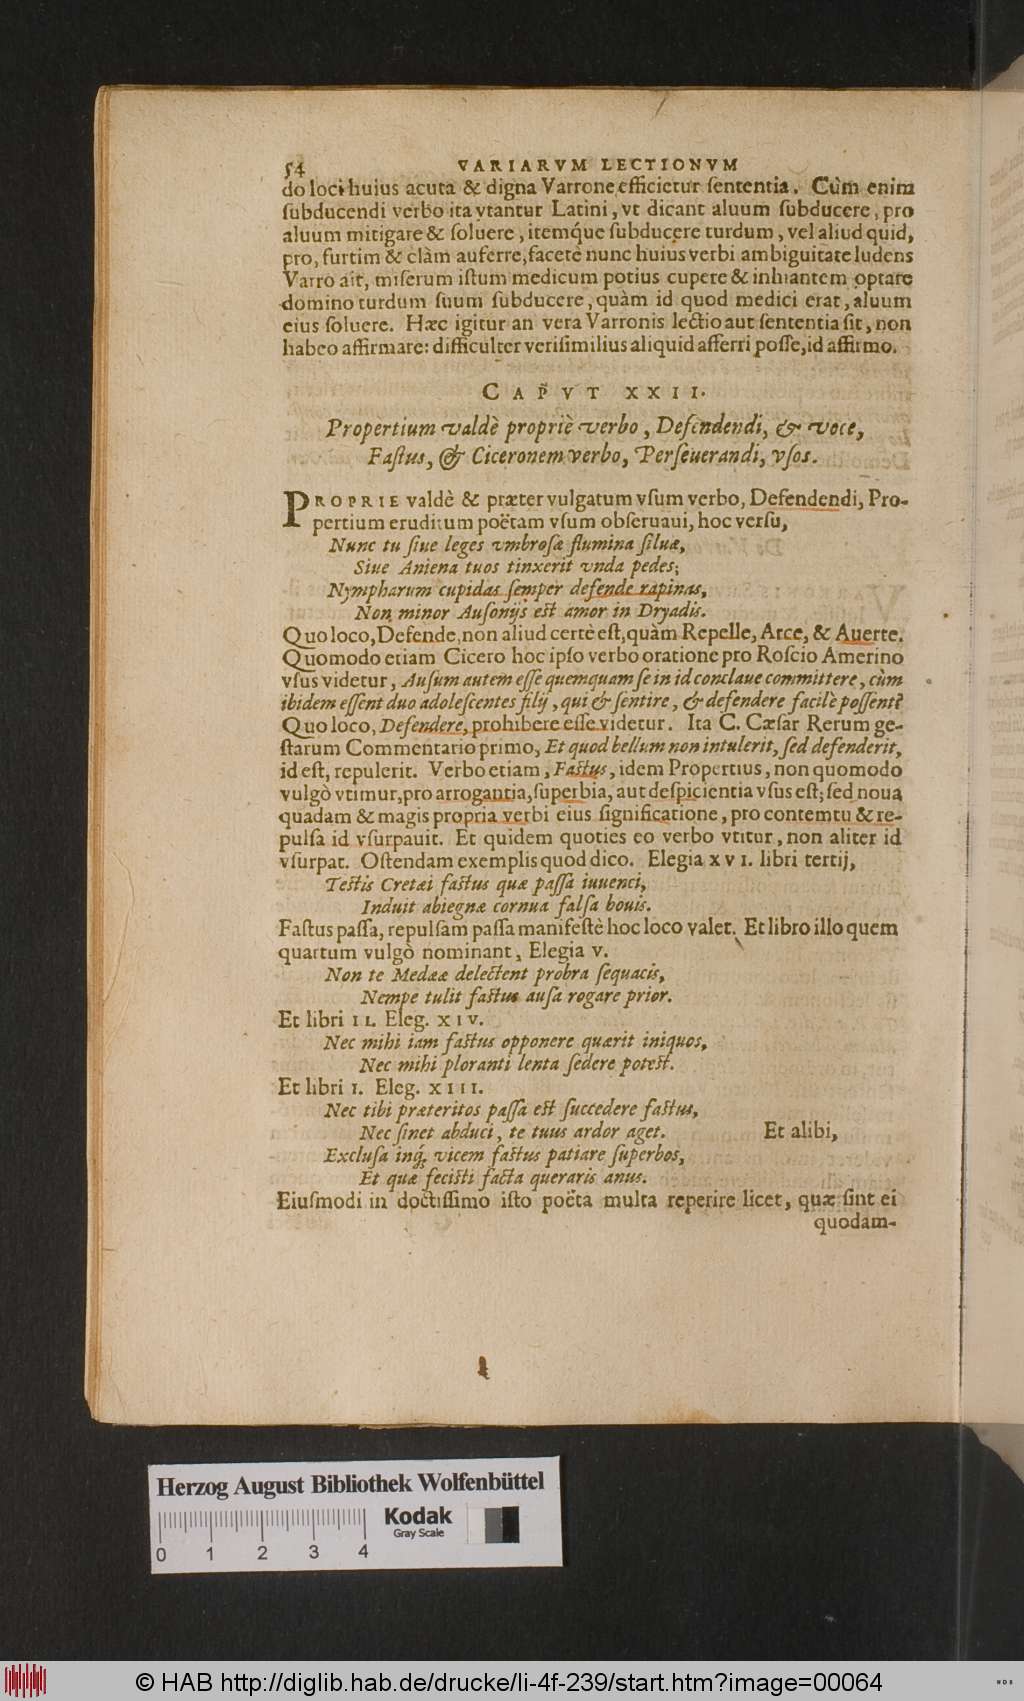 54 VARIARVM LECTIONVM
do loci huius acuta & digna Varrone efficietur ſententia. Cùm enim
ſubducendi verbo ita vtantur Latini, vt dicant aluum ſubducere, pro
aluum mitigare & ſoluere, itemq́ue ſubducere turdum, vel aliud quid,
pro, furtim & clàm auferre, facetè nunc huius verbi ambiguitate ludens
Varro ait, miſerum iſtum medicum potius cupere & inhiantem optare
domino turdum ſuum ſubducere, quàm id quod medici erat, aluum
eius ſoluere. Hæc igitur an vera Varronis lectio aut ſententia ſit, non
habeo affirmare: difficulter veriſimilius aliquid afferri poſſe, id affirmo.
CAPVT XXII.
Propertium valdè propriè verbo, Defendendi, & voce,
Faſtus, & Ciceronem verbo, Perſeuerandi, vſos.
PROPRIE valdè & præter vulgatum vſum verbo, Defendendi, Pro-
pertium eruditum poëtam vſum obſeruaui, hoc verſu,
Nunc tu ſiue leges vmbroſæ flumina ſiluæ,
Siue Aniena tuos tinxerit vnda pedes;
Nympharum cupidas ſemper defende rapinas,
Non minor Auſonijs est amor in Dryadis.
Quo loco, Defende, non aliud certè eſt, quàm Repelle, Arce, & Auerte.
Quomodo etiam Cicero hoc ipſo verbo oratione pro Roſcio Amerino
vſus videtur, Auſum autem eſſe quemquam ſe in id conclaue committere, cùm
ibidem eſſent duo adoleſcentes filij, qui & ſentire, & defendere facilè poſſent?
Quo loco, Defendere, prohibere eſſe videtur. Ita C. Cæſar Rerum ge-
ſtarum Commentario primo, Et quod bellum non intulerit, ſed defenderit,
id eſt, repulerit. Verbo etiam, Faſtus, idem Propertius, non quomodo
vulgò vtimur, pro arrogantia, ſuperbia, aut deſpicientia vſus eſt; ſed noua
quadam & magis propria verbi eius ſignificatione, pro contemtu & re-
pulſa id vſurpauit. Et quidem quoties eo verbo vtitur, non aliter id
vſurpat. Oſtendam exemplis quod dico. Elegia XVI. libri tertij,
Teſtis Cretæi faſtus quæ paſſa iuuenci,
Induit abiegnæ cornua falſa bouis.
Faſtus paſſa, repulſam paſſa manifeſtè hoc loco valet. Et libro illo quem
quartum vulgò nominant, Elegia V.
Non te Medææ delectent probra ſequacis,
Nempe tulit faſtus auſa rogare prior.
Et libri II. Eleg. XIV.
Nec mihi iam faſtus opponere quærit iniquos,
Nec mihi ploranti lenta ſedere potest.
Et libri I. Eleg. XIII.
Nec tibi præteritos paſſa est ſuccedere faſtus,
Nec ſinet abduci, te tuus ardor aget. Et alibi,
Excluſa inq́. vicem faſtus patiare ſuperbos,
Et quæ feciſti facta queraris anus.
Eiuſmodi in doctiſſimo iſto poëta multa reperire licet, quæ ſint ei
quodam-
Herzog August Bibliothek Wolfenbüttel
Kodak
Gray Scale
0 1 2 3 4
© HAB http://diglib.hab.de/drucke/li-4f-239/start.htm?image=00064